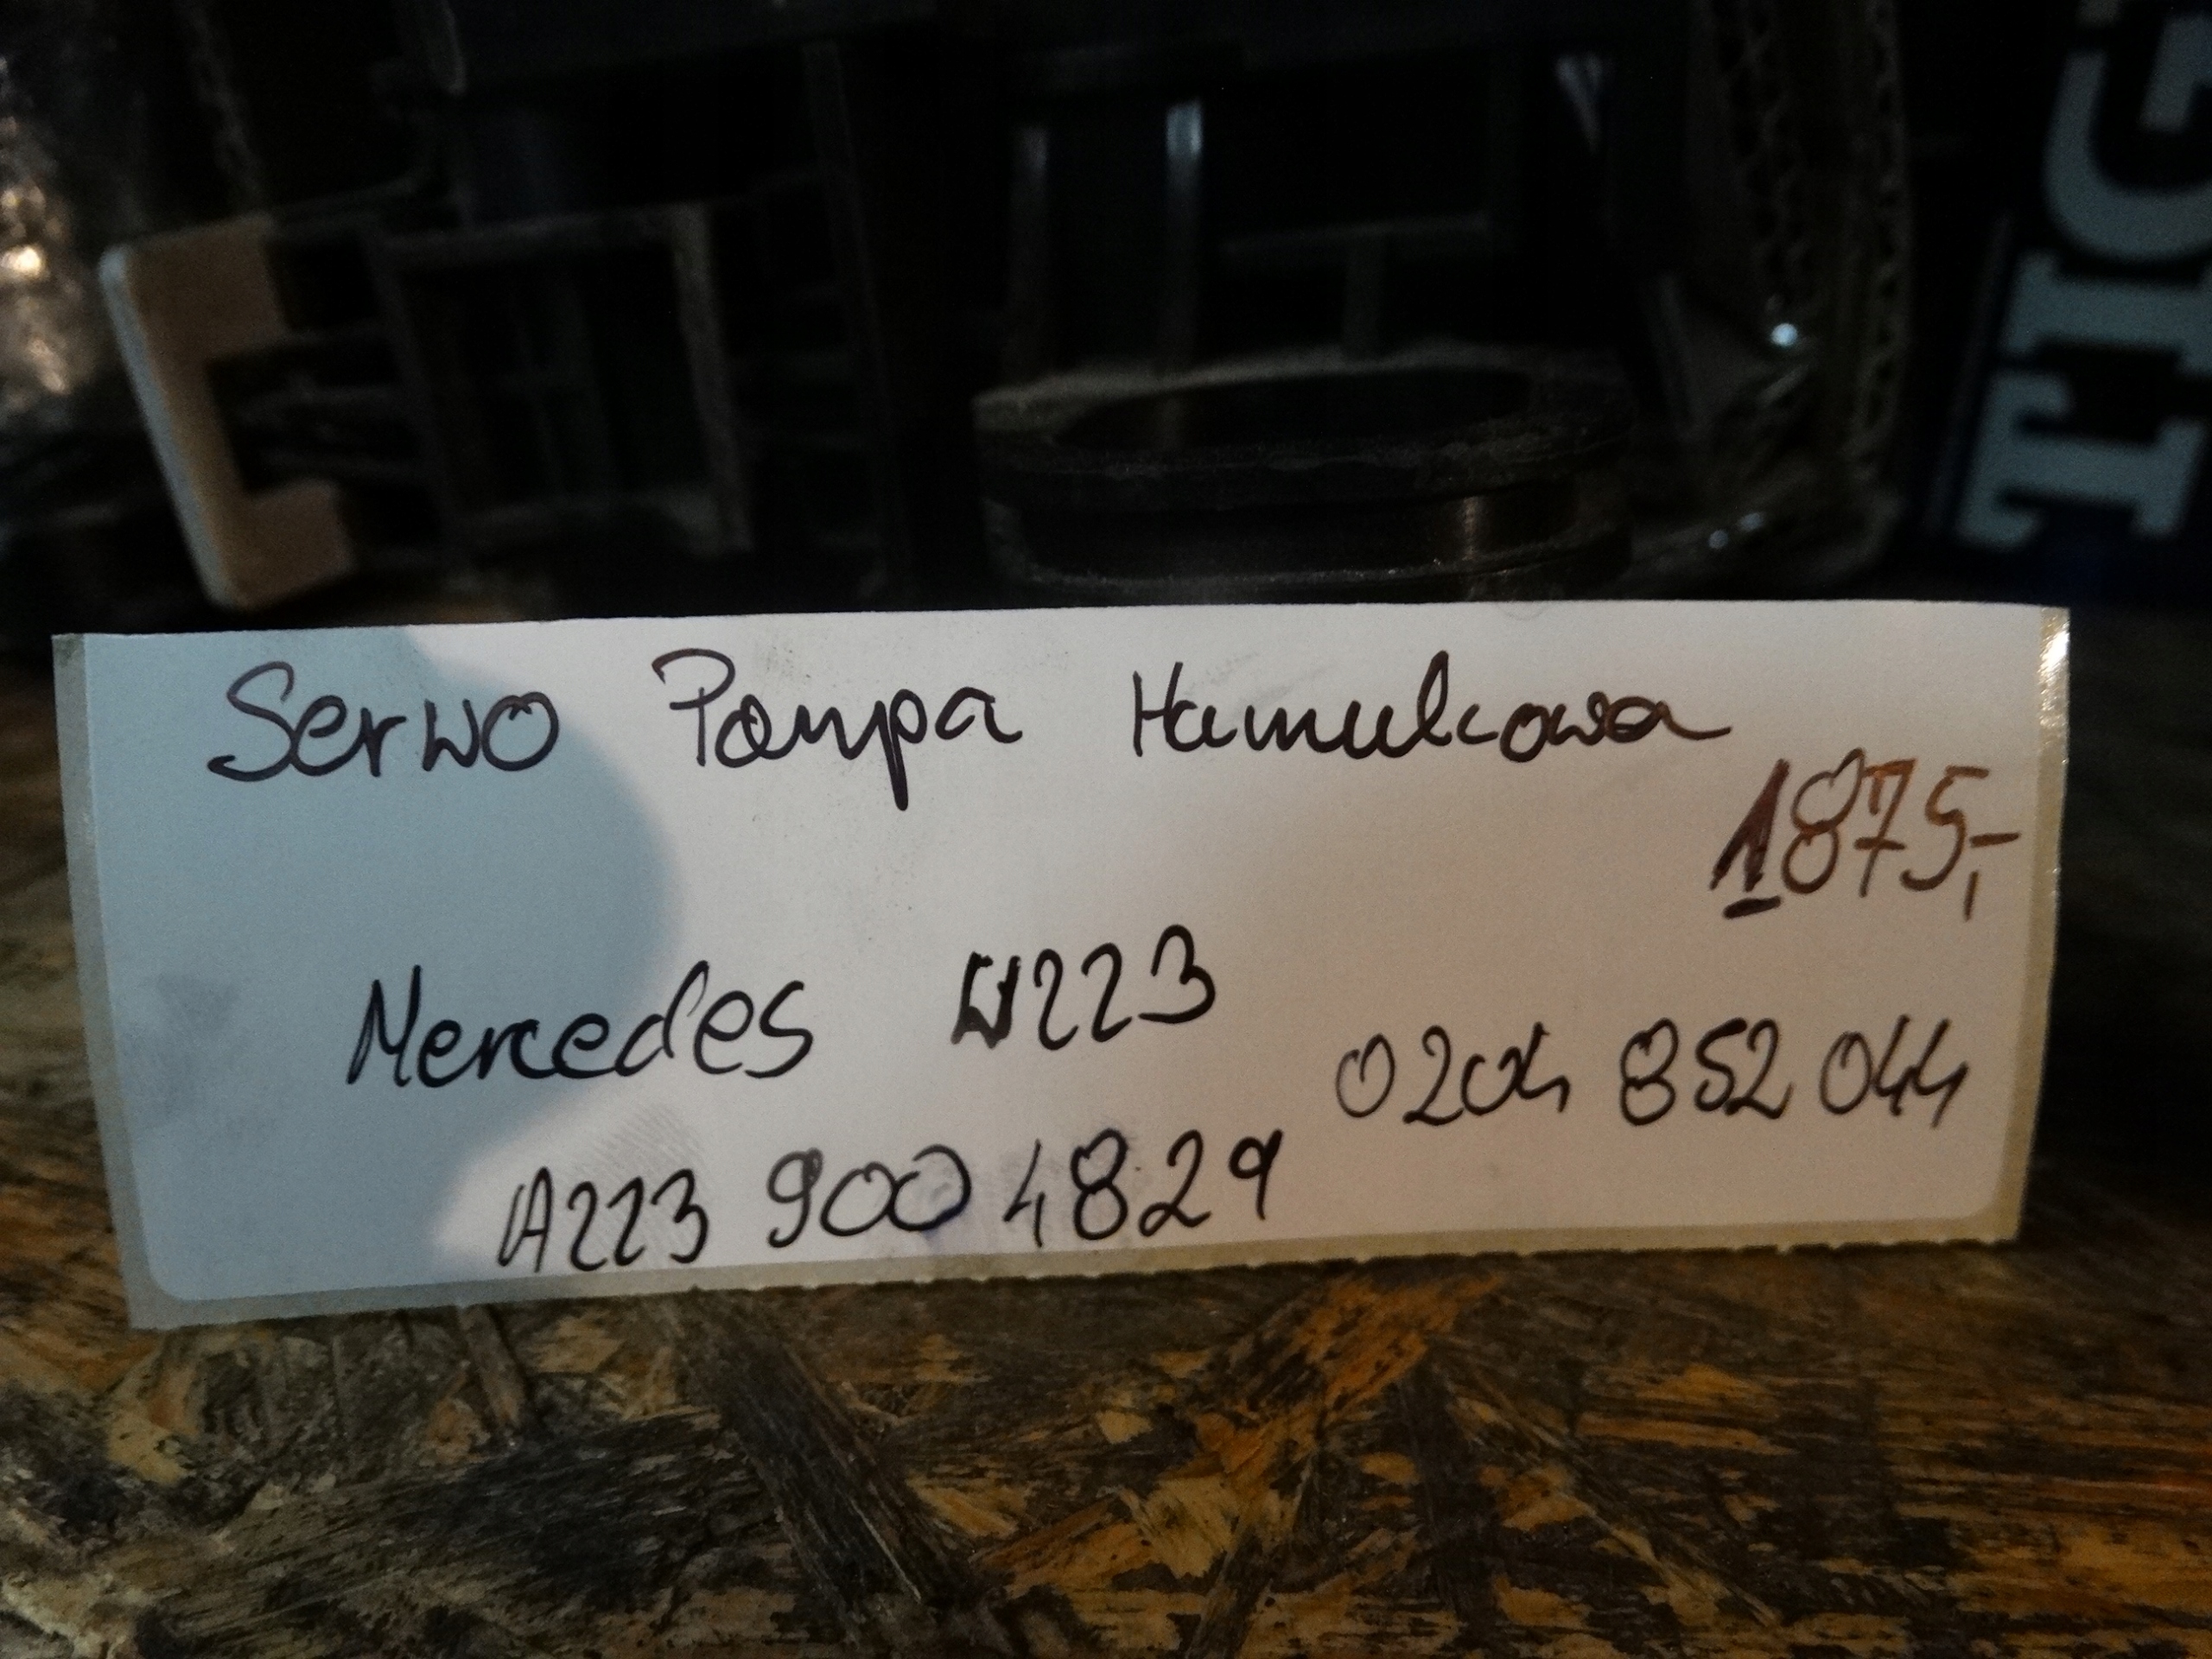 Serwo Pompa Hamulcowa
1875,-
Mercedes W223
0204 852 044
A223 900 4829